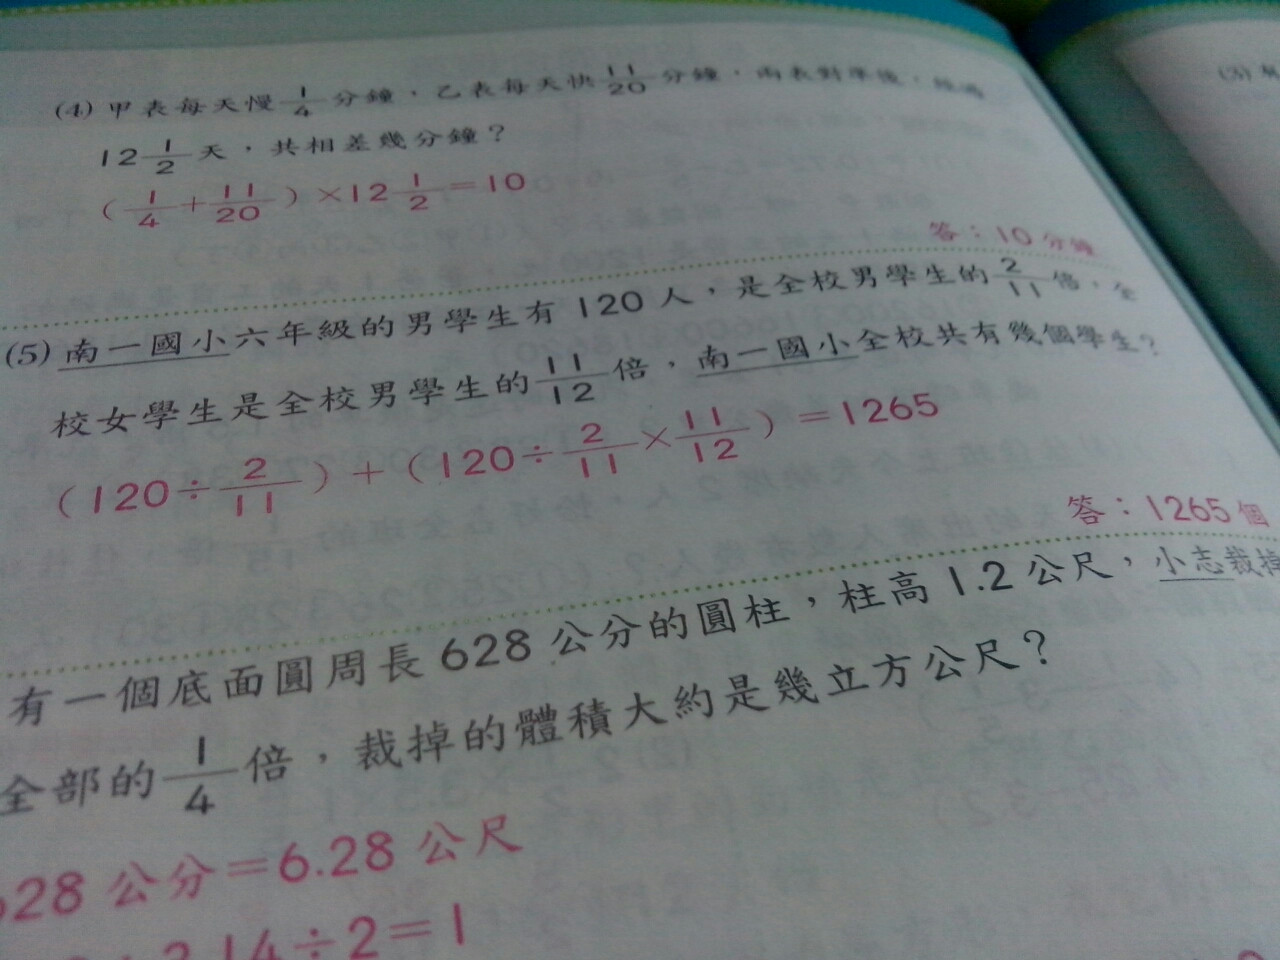 (4) 甲表每天慢 1/4 分鐘，乙表每天快 11/20 分鐘，兩表對準後，經過
12 1/2 天，共相差幾分鐘？
(1/4+11/20)×12 1/2=10
答：10分鐘
(5) 南一國小六年級的男學生有 120 人，是全校男學生的 2/11 倍，全
校女學生是全校男學生的 11/12 倍，南一國小全校共有幾個學生？
(120÷2/11)+(120÷2/11×11/12)=1265
答：1265個
有一個底面圓周長 628 公分的圓柱，柱高 1.2 公尺，小志裁掉
全部的 1/4 倍，裁掉的體積大約是幾立方公尺？
628 公分=6.28 公尺
3.14÷2=1
(3)